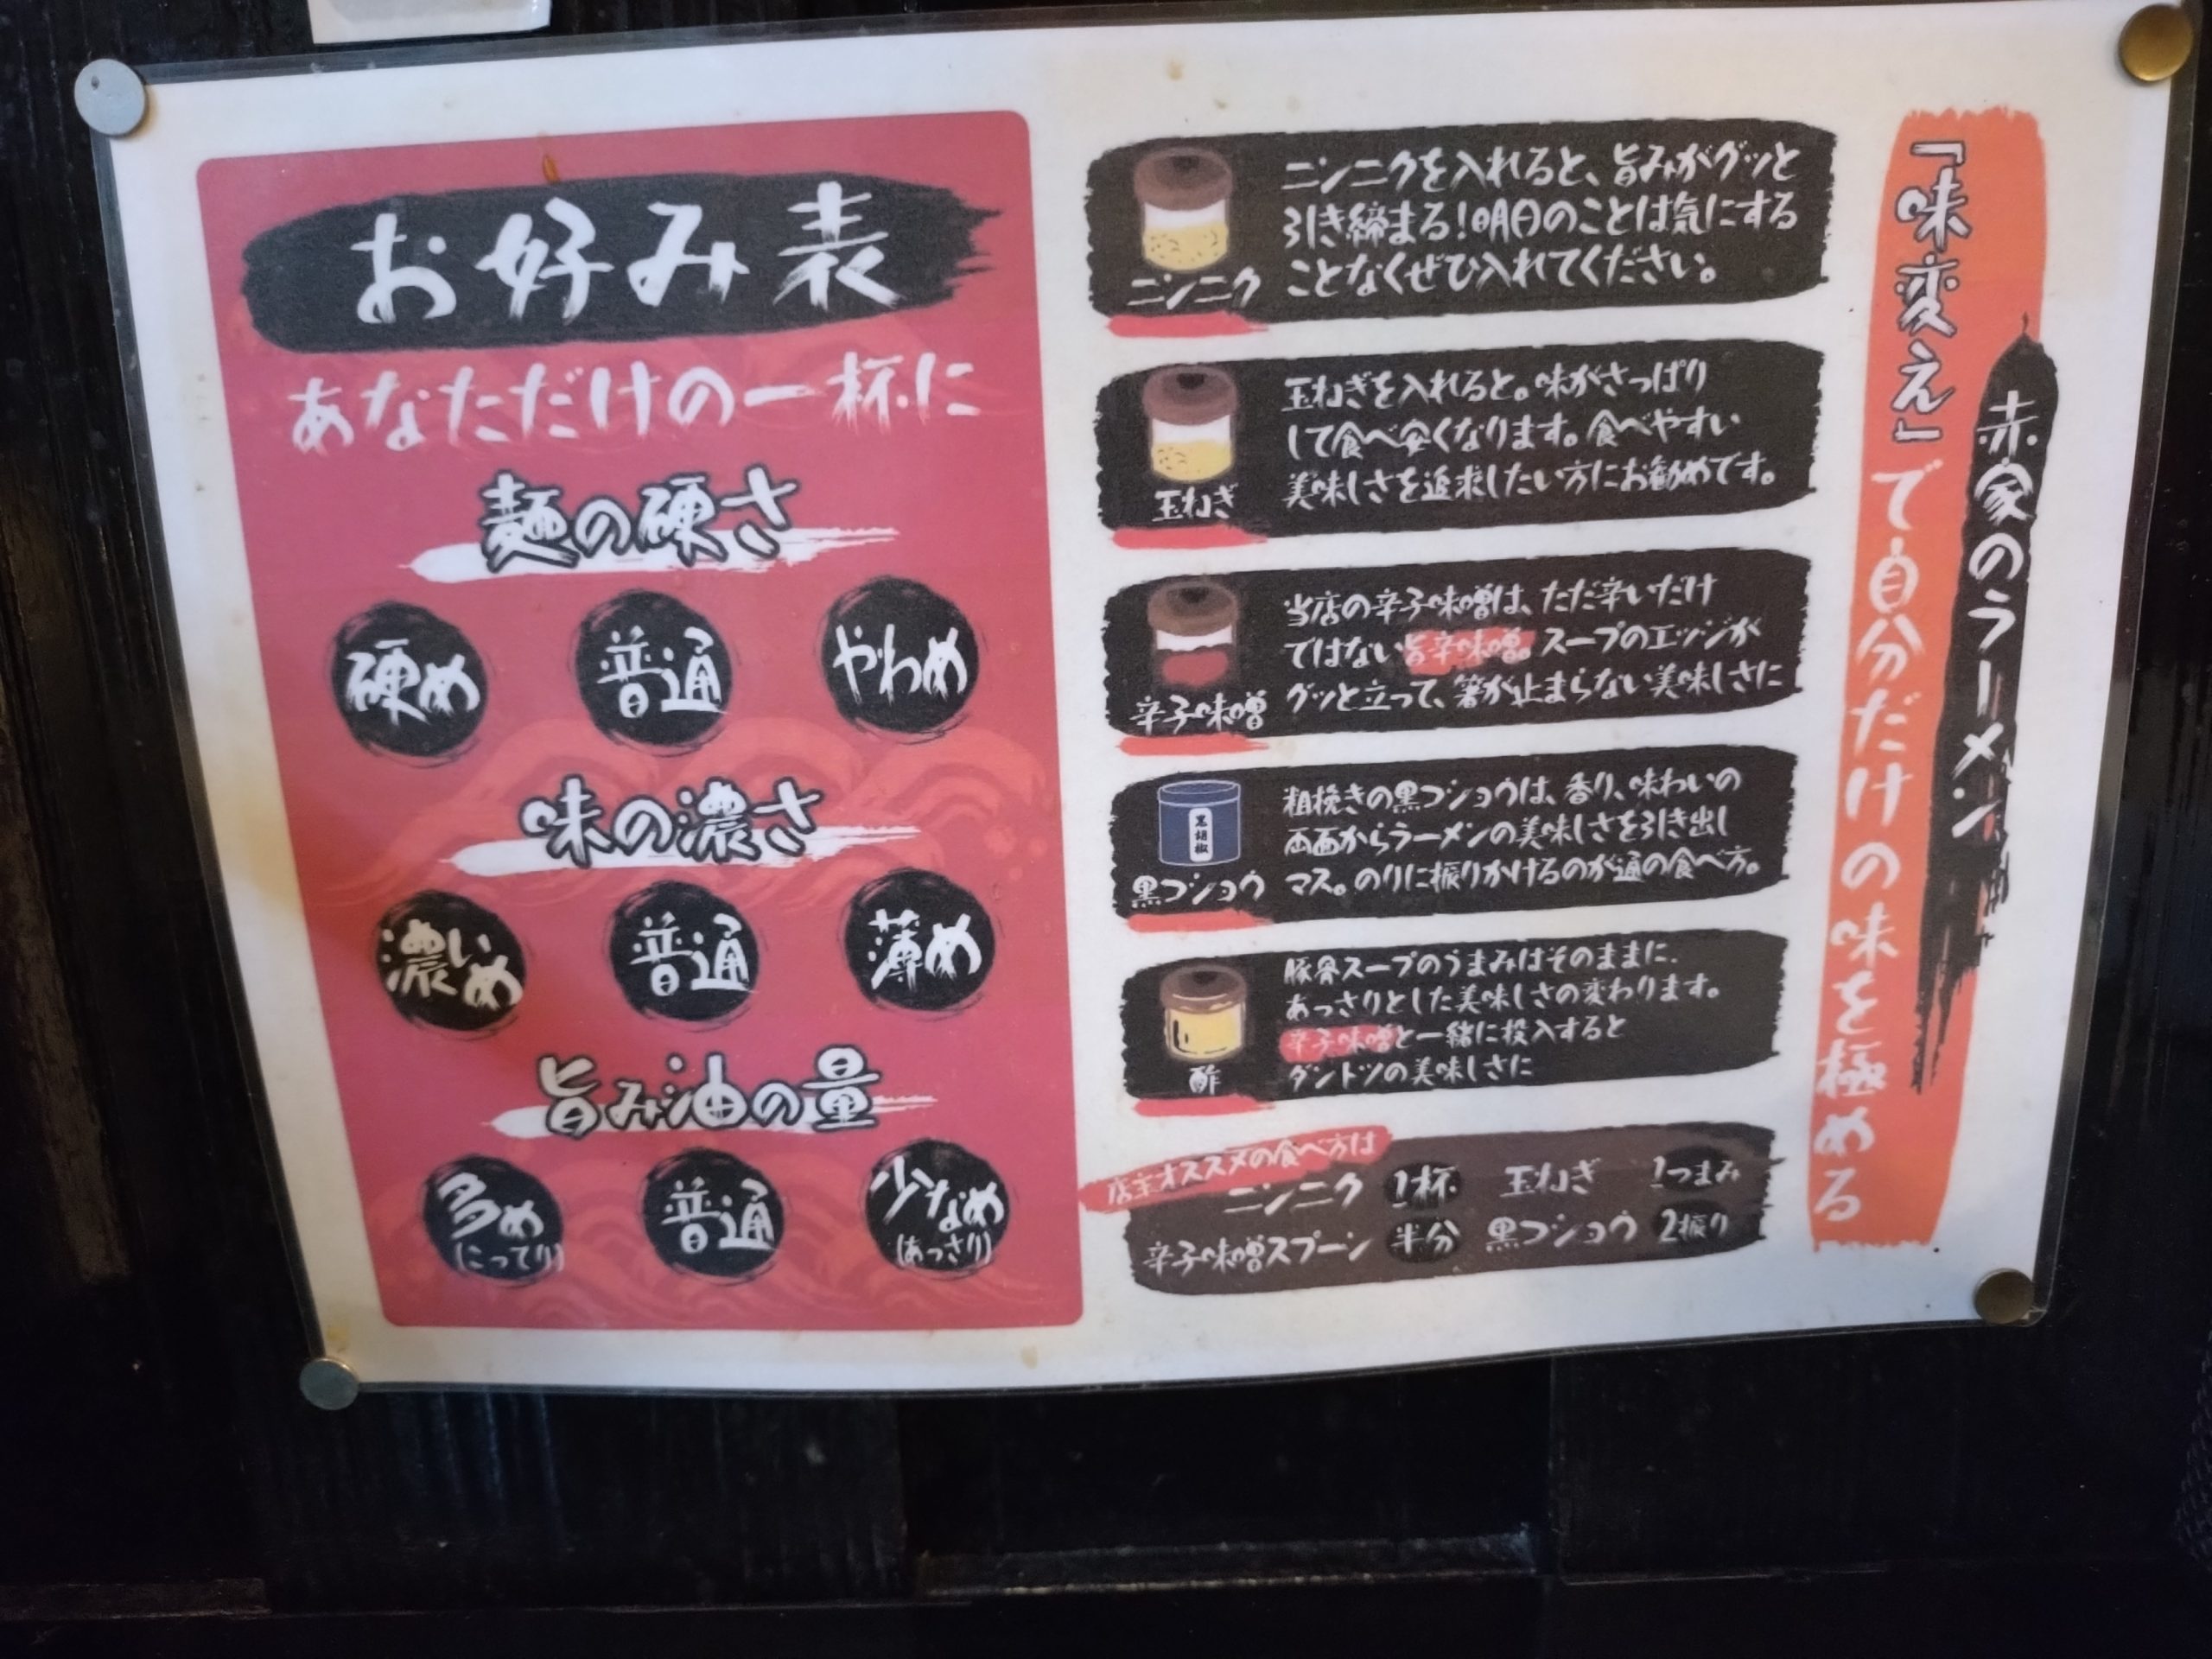 お好み表
あなただけの一杯に
麺の硬さ
硬め 普通 やわめ
味の濃さ
濃いめ 普通 薄め
旨み油の量
多め 普通 少なめ
(こってり) (あっさり)
赤家のラーメン
「味変え」で自分だけの味を極める
ニンニク
ニンニクを入れると、旨みがグッと
引き締まる!明日のことは気にする
ことなくぜひ入れてください。
玉ねぎ
玉ねぎを入れると。味がさっぱり
して食べ安くなります。食べやすい
美味しさを追求したい方にお勧めです。
辛子味噌
当店の辛子味噌は、ただ辛いだけ
ではない旨辛味噌。スープのエッジが
グッと立って、箸が止まらない美味しさに
黒胡椒
黒コショウ
粗挽きの黒コショウは、香り、味わいの
両面からラーメンの美味しさを引き出し
マス。のりに振りかけるのが通の食べ方。
酢
豚骨スープのうまみはそのままに、
あっさりとした美味しさの変わります。
辛子味噌と一緒に投入すると
ダントツの美味しさに
店主オススメの食べ方は
ニンニク 1杯 玉ねぎ 1つまみ
辛子味噌スプーン 半分 黒コショウ 2振り